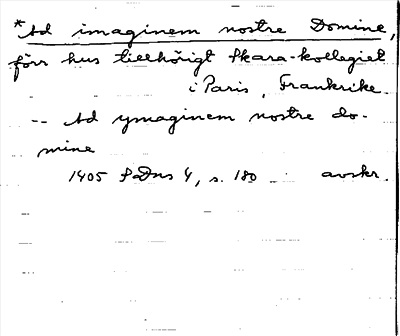 *Ad imaginem nostre Domine,
förr hus tillhörigt Skara-kollegiet
i Paris, Frankrike.
-- Ad ymaginem nostre do-
mine
1405 SDns 4, s. 180 avskr.